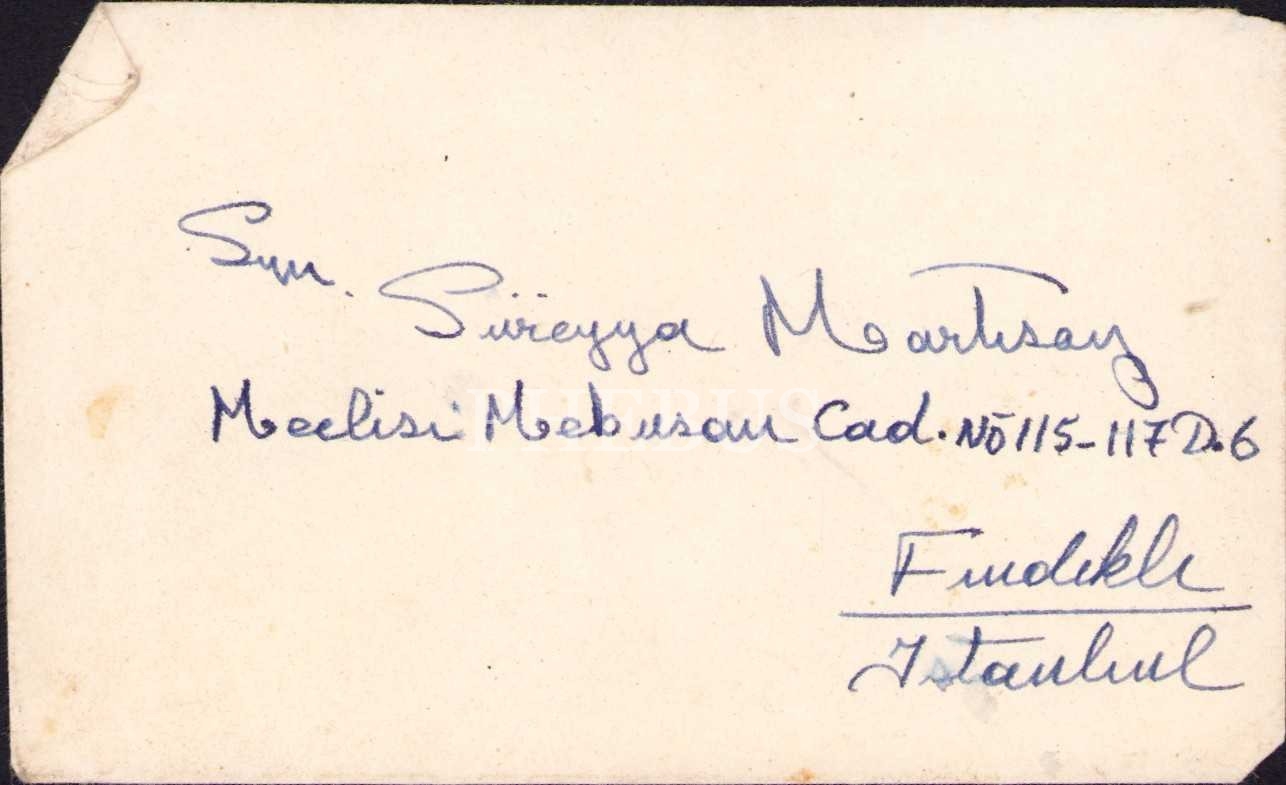 Syn.
Süreyya Martısay
Meclisi Mebusan Cad. No 115-117 D.6
PHEBUS
Fındıklı
Istanbul